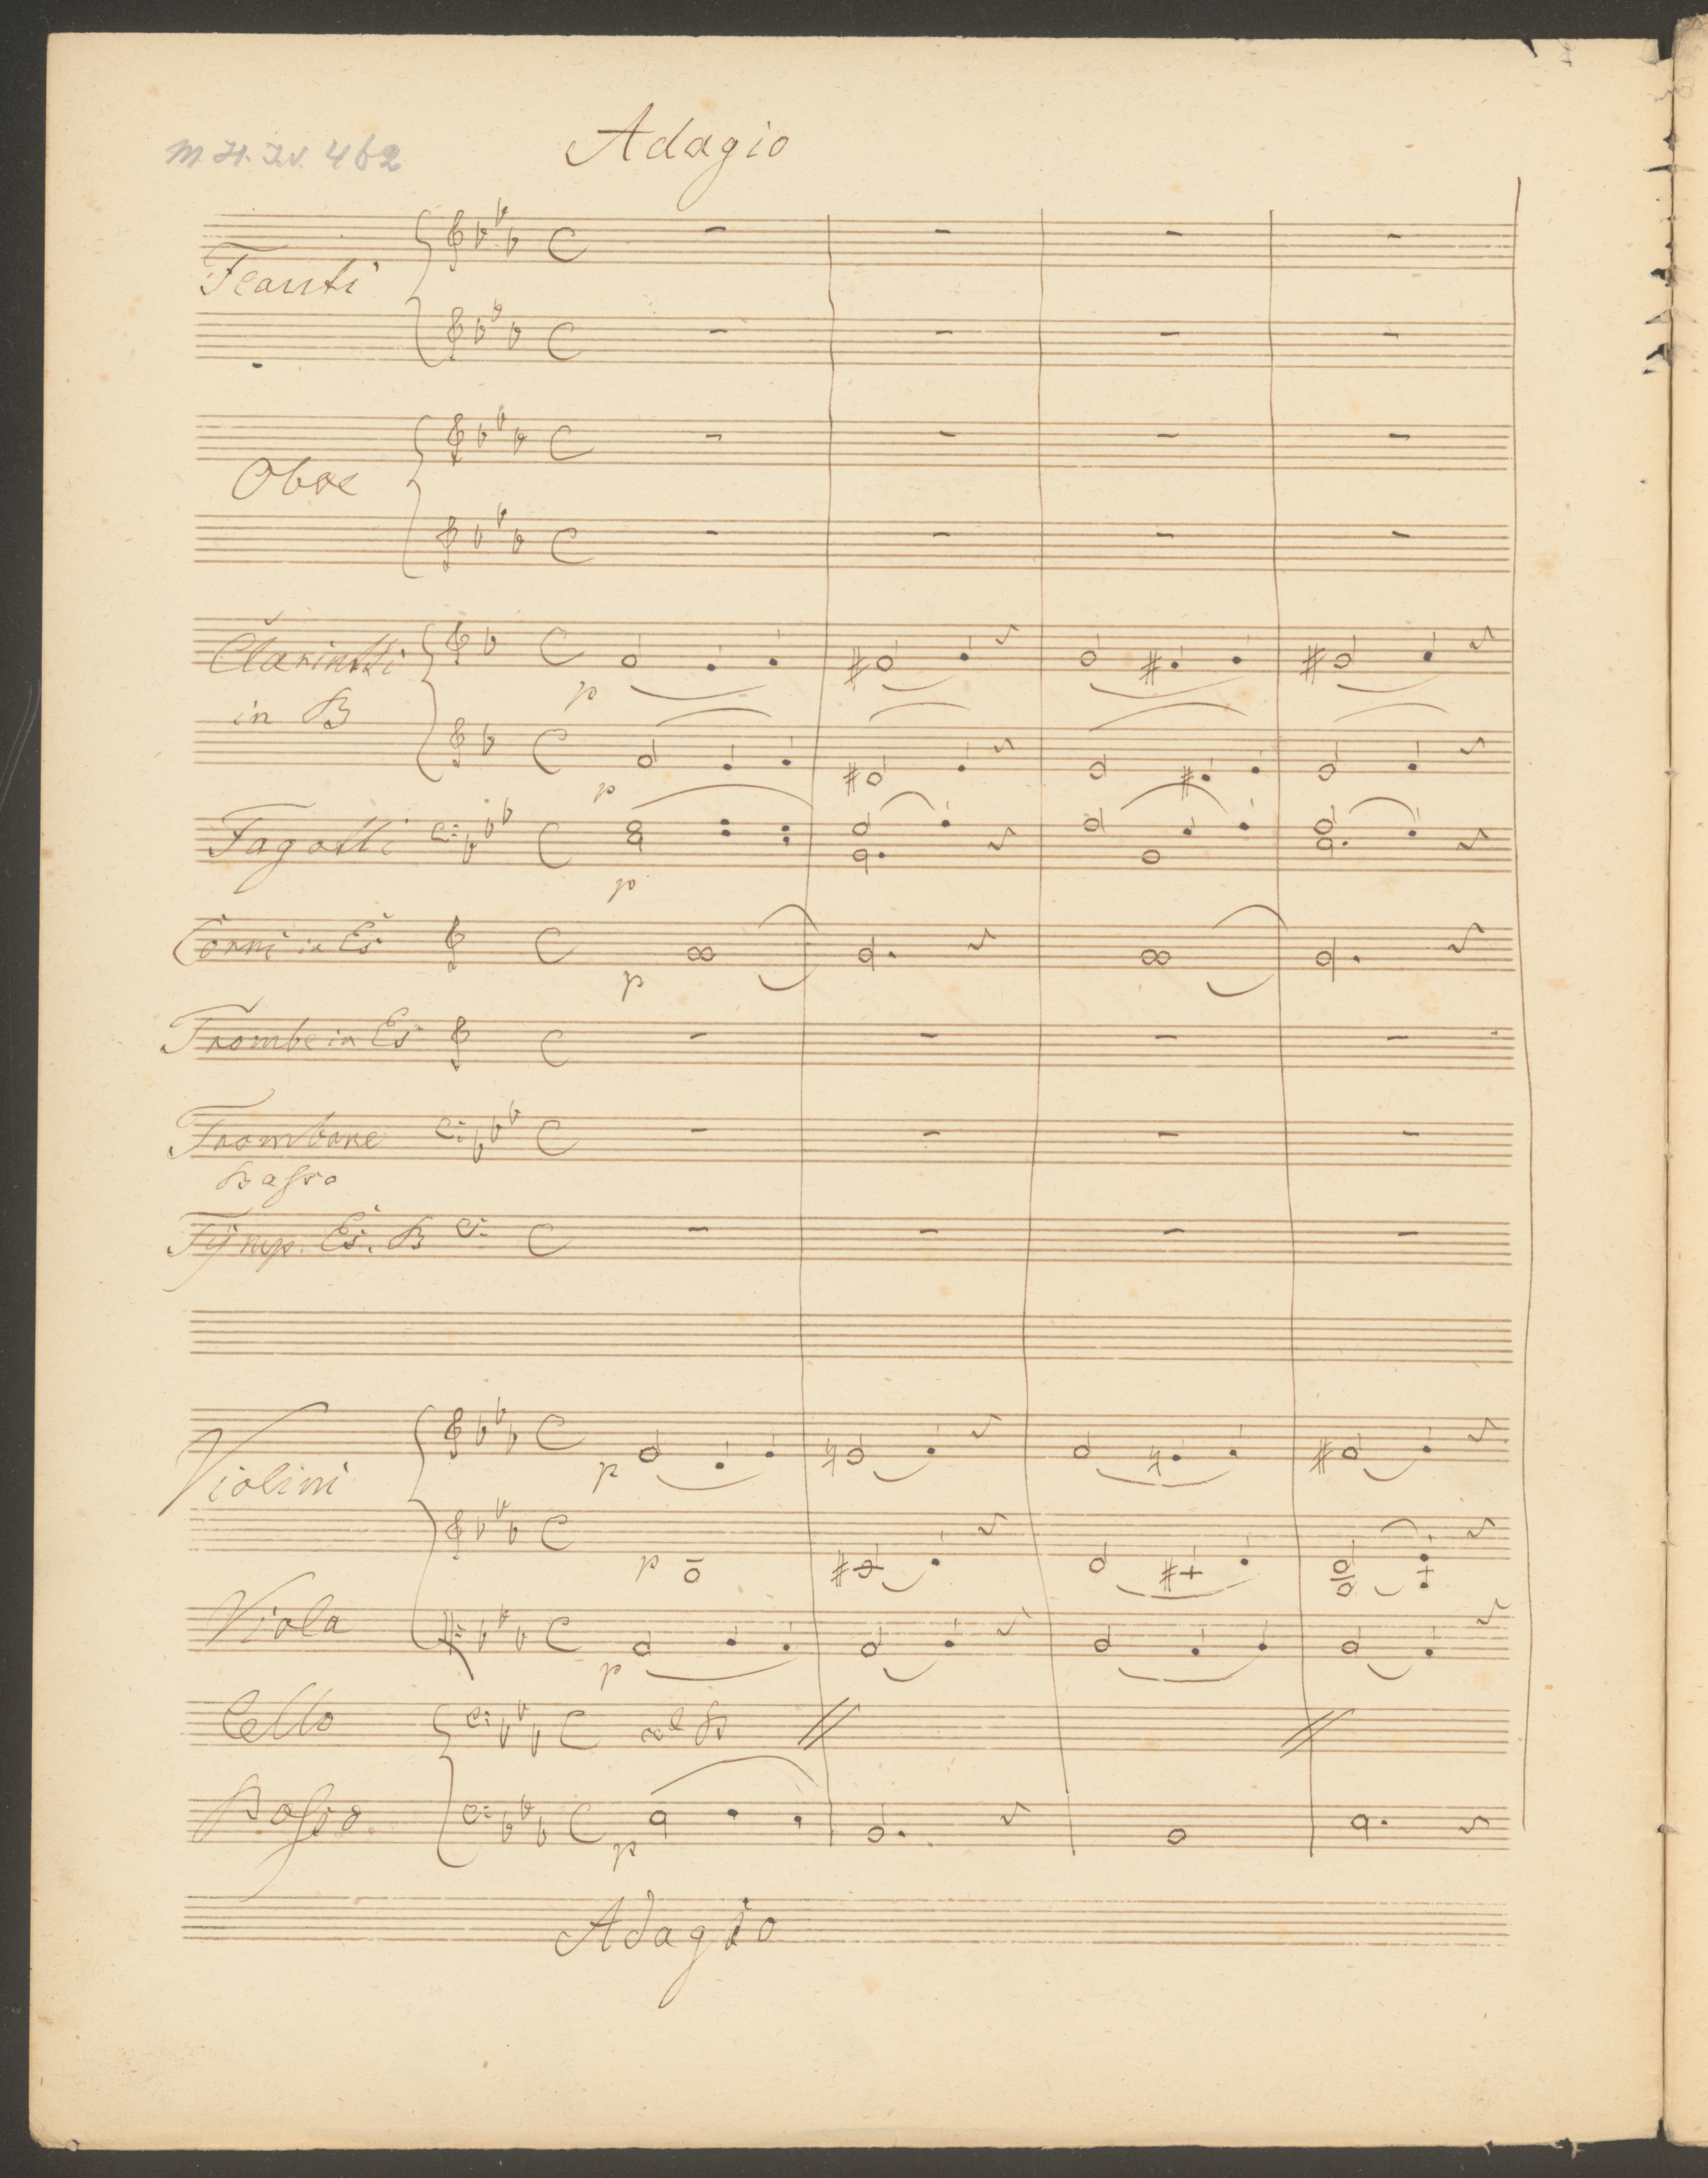 Adagio
M. H. Iv. 462
Flauti
Oboe
Clarinetti
in B
p
p
Fagotti
p
Corni in Es
p
Trombe in Es
Trombone
Basso
Tÿmp. Es. B
Violini
p
p
Viola
p
Cello
col B
Basso
p
Adagio